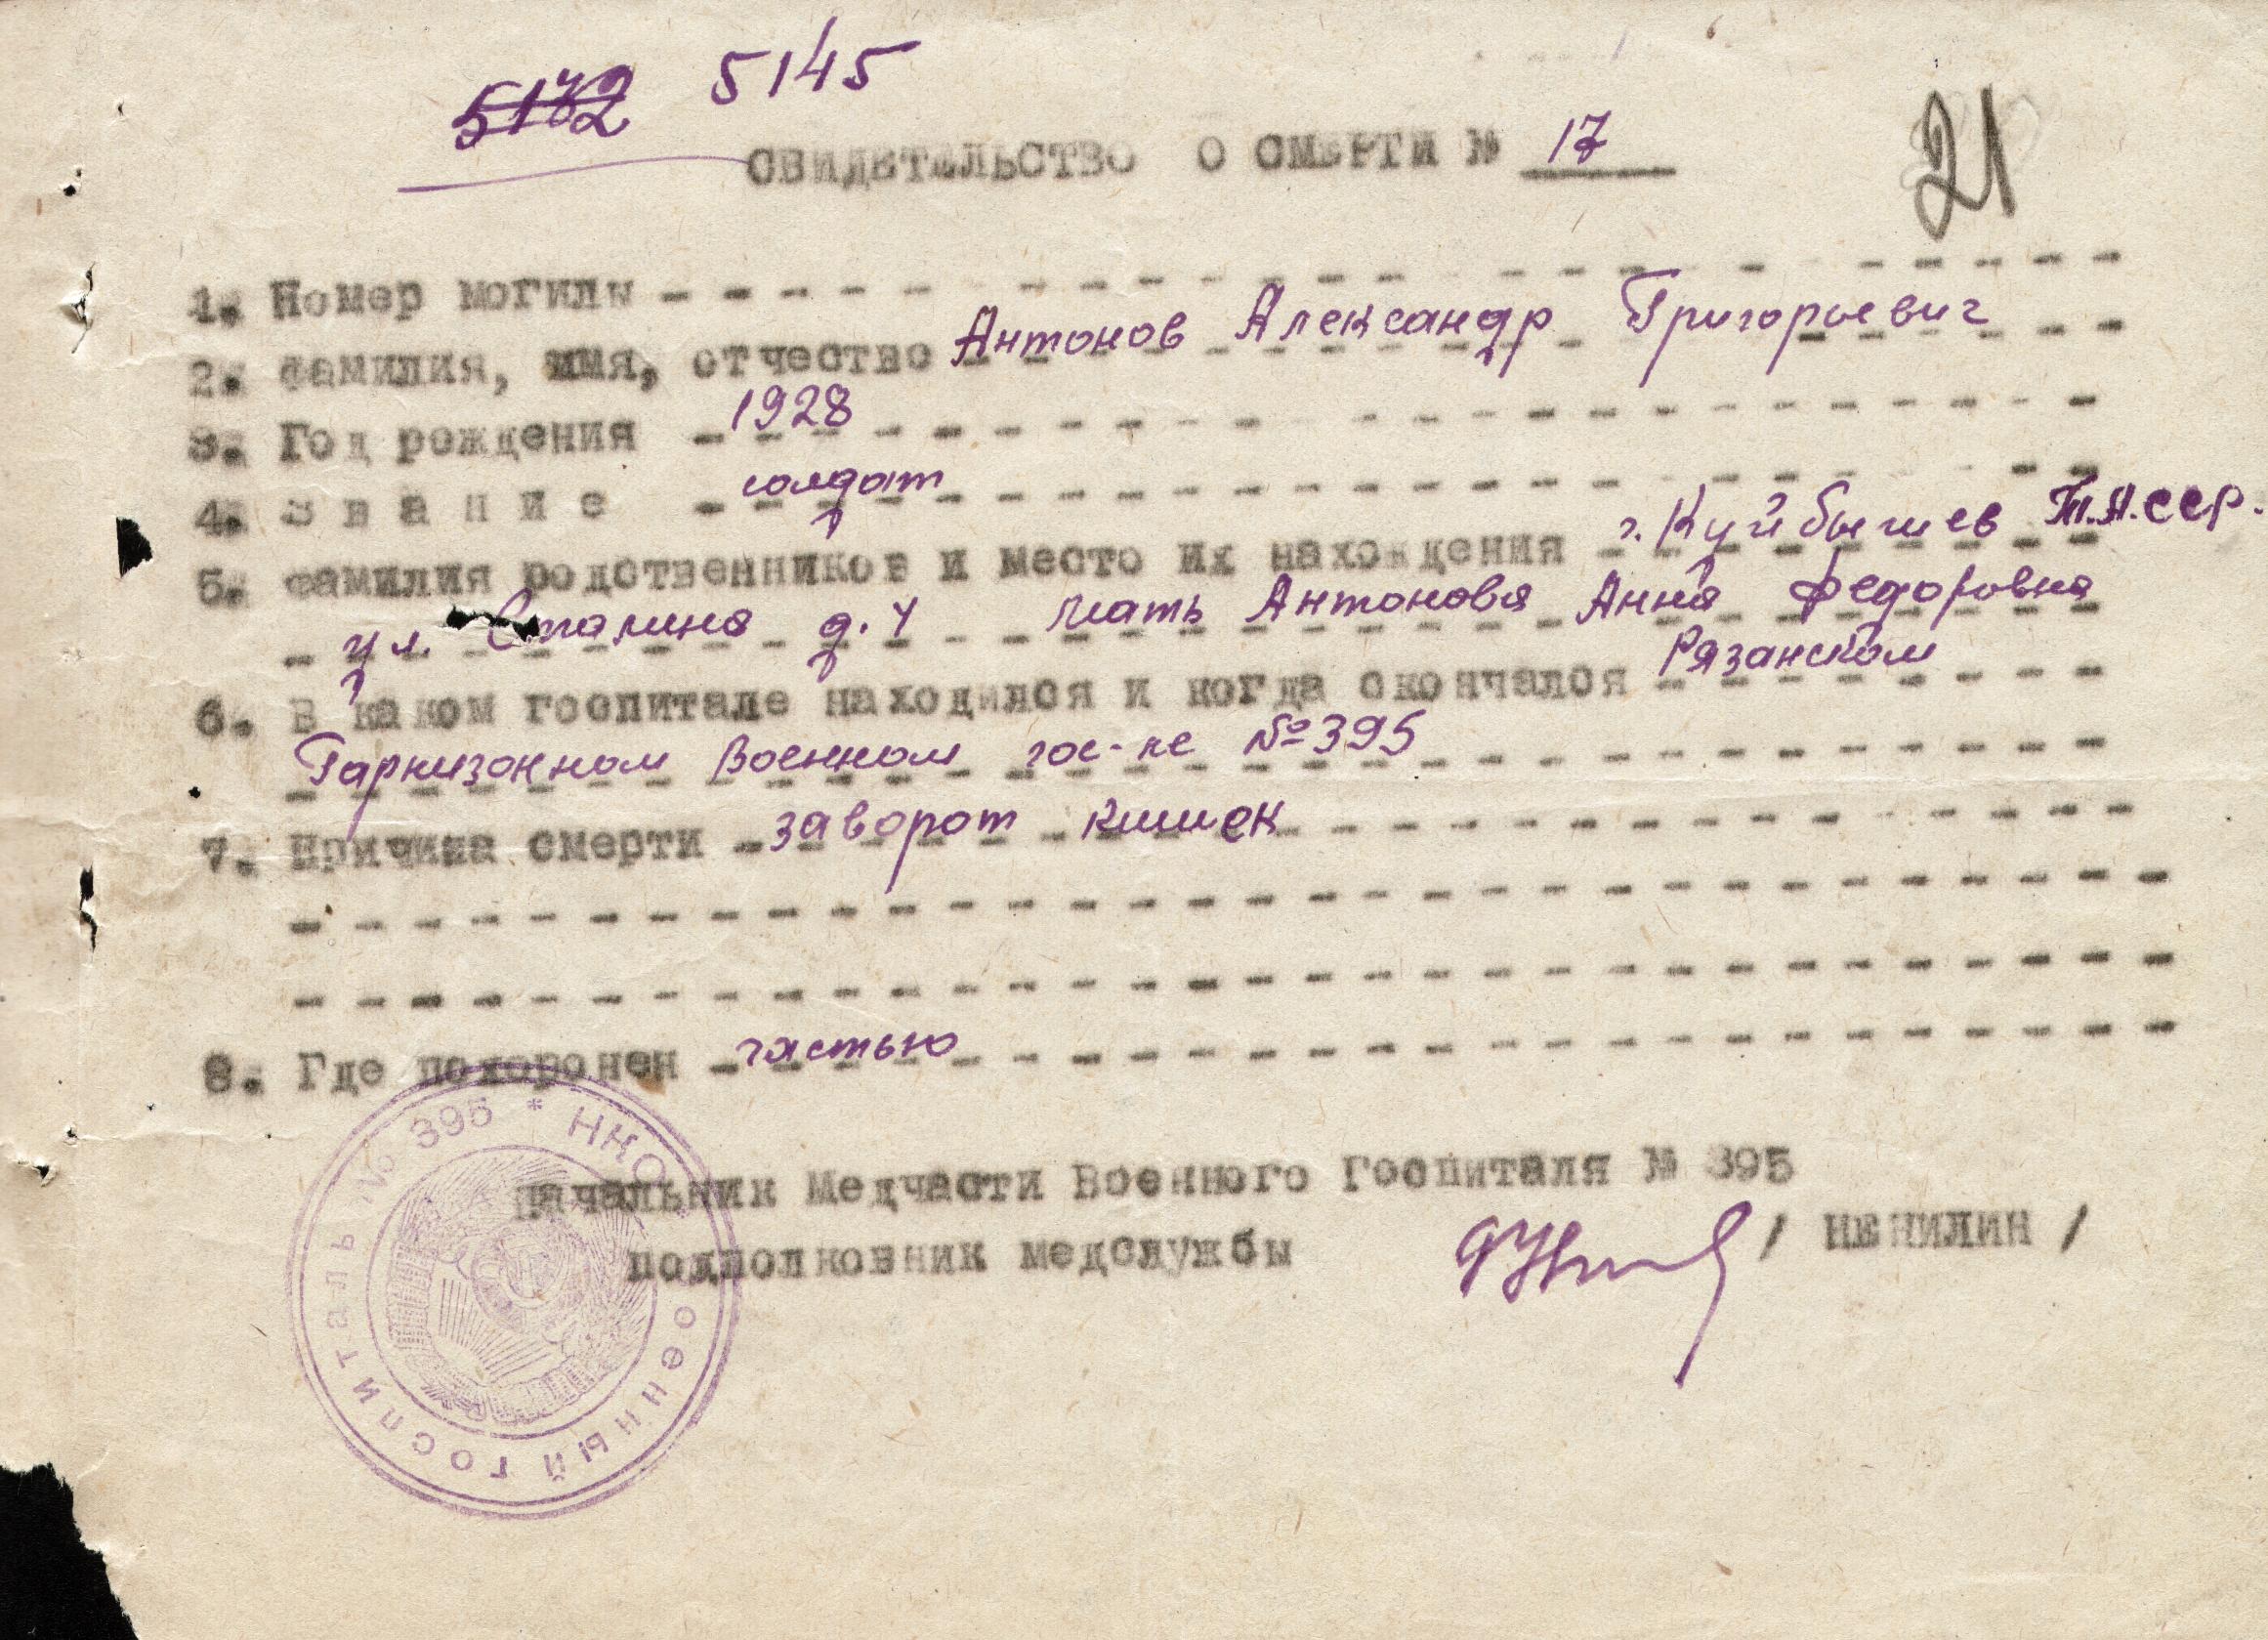 5145
СВИДЕТЕЛЬСТВО О СМЕРТИ № 17
21
1. Номер могилы
2. Фамилия, имя, отчество Антонов Александр Григорьевич
3. Год рождения 1928
4. Звание солдат
5. Фамилия родственников и место их нахождения г. Куйбышев Т.А.ССР.
ул. Сталина д. 4 мать Антонова Анна Федоровна
6. В каком госпитале находился и когда скончался Рязанском
Гарнизонном Военном гос-ле № 395
7. Причина смерти заворот кишек
8. Где похоронен частью
Начальник Медчасти Военного Госпиталя № 395
подполковник медслужбы / НЕНИЛИН /
НКО * Военный госпиталь № 395 *